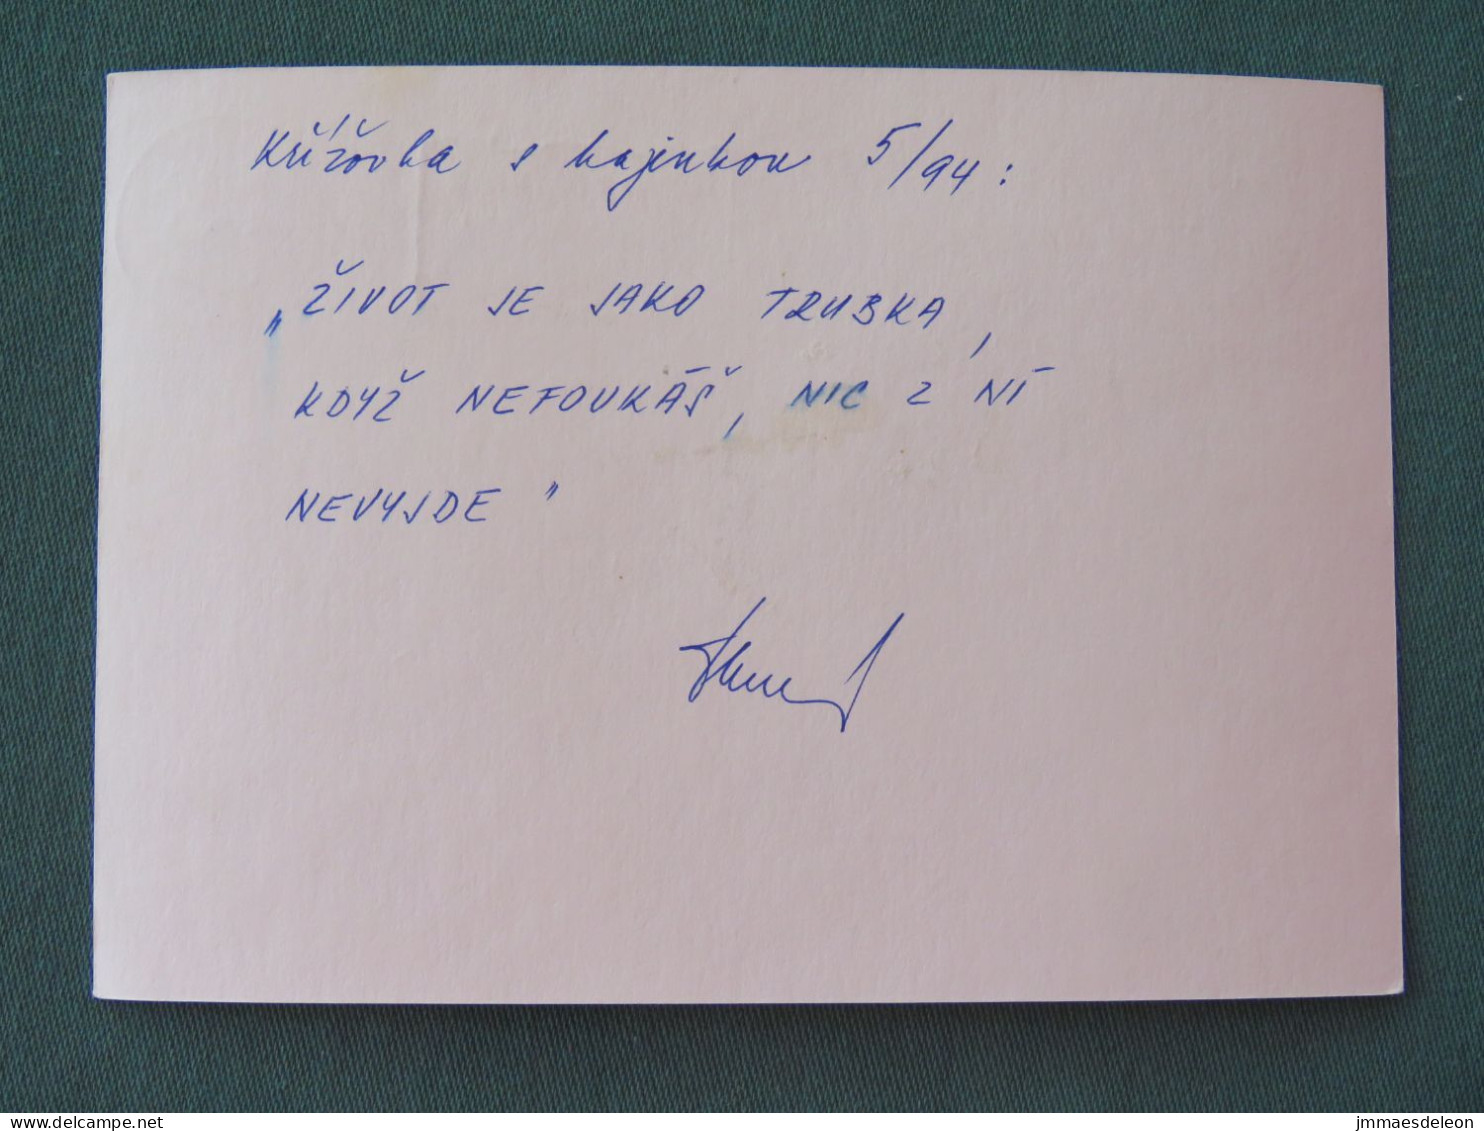 Křížovka s kajinkou 5/94:
„ŽIVOT JE JAKO TRUBKA,
KDYŽ NEFOUKÁŠ, NIC Z NÍ
NEVYJDE"
www.delcampe.net
jmmaesdeleon